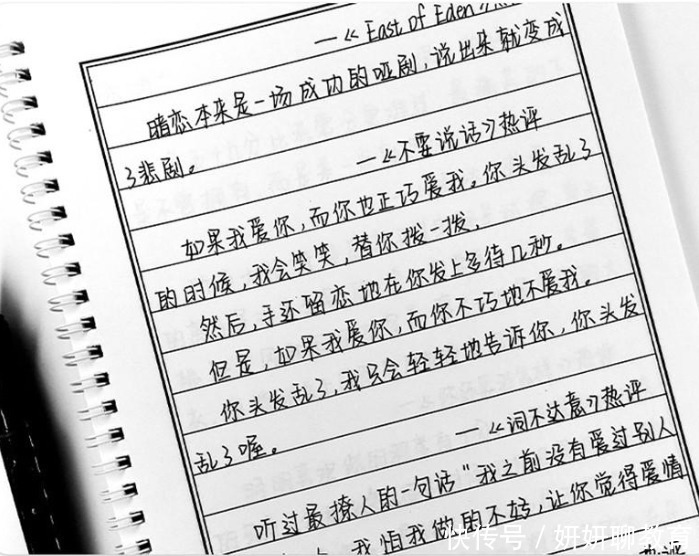 —《East of Eden》热
暗恋本来是一场成功的哑剧，说出来就变成
了悲剧。 —《不要说话》热评
如果我爱你，而你也正巧爱我。你头发乱了
的时候，我会笑笑，替你拨一拨，
然后，手还留恋地在你发上多待几秒。
但是，如果我爱你，而你不巧地不爱我。
你头发乱了，我只会轻轻地告诉你，你头发
乱了喔。 —《词不达意》热评
听过最撩人的一句话“我之前没有爱过别人
我怕我做的不好，让你觉得爱情
快传号／妍妍聊教育